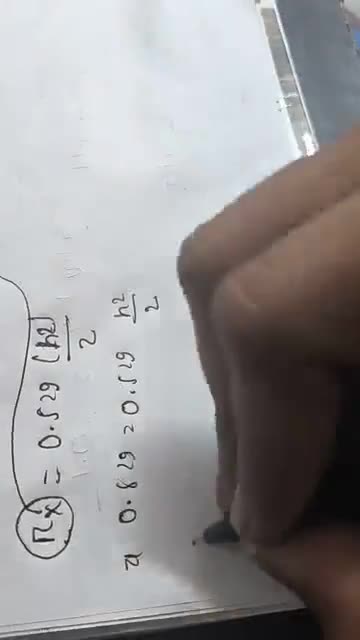 rₓ = 0.529 (h²)/2
⇒ 0.829 = 0.529 h²/2